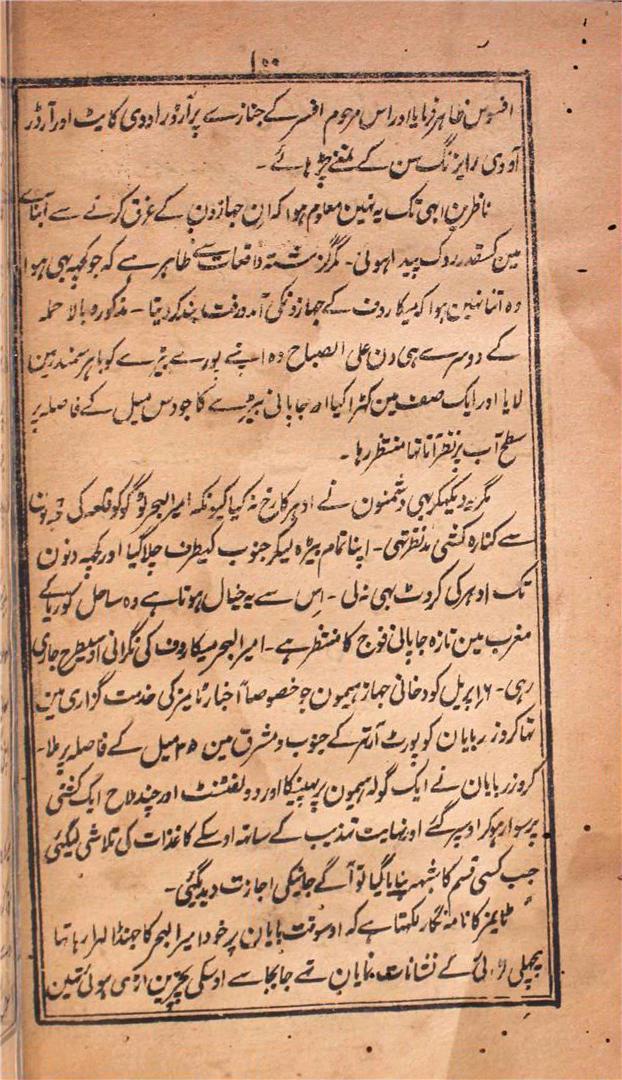 ۱۰۰
افسوس ظاہر فرمایا اور اس مرحوم افسر کے جنازے پر آرڈر اووی کایٹ اور آرڈر
آووی رایزنگ سن کے تمغے چڑہائے۔
ناظرین ابہی تک یہ نہین معلوم ہوا کہ ان جہازون کے غرق کرنے سے آبنائے
مین کسقدر روک پیدا ہوئی۔ مگر گزشتہ واقعات سے ظاہر ہے کہ جو کچہہ بہی ہوا
وہ اتنا نہین ہوا کہ میکاروف کے جہازونکی آمدورفت بند کر دیتا۔ مذکورہ بالا حملہ
کے دوسرے ہی دن علی الصباح وہ اپنے پورے بیڑے کو باہر سمندر مین
لایا اور ایک صف مین کہڑا کیا اور جاپانی بیڑے کا جو دس میل کے فاصلہ پر
سطح آب پر نظر آتا تہا منتظر رہا۔
مگر یہ دیکہکر بہی دشمنون نے ادہر کا رخ نہ کیا کیونکہ امیرالبحر ٹوگو کو قلعہ کی توپون
سے کنارہ کشی مدنظر تہی۔ اپنا تمام بیڑہ لیکر جنوب کیطرف چلا گیا اور کچہہ دنون
تک اودہر کی کروٹ بہی نہ لی۔ اس سے یہ خیال ہوتا ہے وہ ساحل کوریا کے
مغرب مین تازہ جاپانی فوج کا منتظر ہے۔ امیرالبحر میکاروف کی نگرانی اوسیطرح جاری
رہی۔ ۶ اپریل کو دخانی جہاز ہیمون جو خصوصاً اخبار ٹایمز کی خدمت گزاری مین
تہا کروزر بایان کو پورٹ آرتہر کے جنوب و مشرق مین ۳۵ میل کے فاصلہ پر ملا۔
کروزر بایان نے ایک گولہ ہیمون پر پہینکا اور دو لفٹنٹ اور چند ملاح ایک کشتی
پر سوار ہو کر اوسپر گئے اور نہایت تہذیب کے ساتہہ اوسکے کاغذات کی تلاشی لیگئی
جب کسی قسم کا شبہہ نہ پایا گیا تو آگے جانیکی اجازت دیدیگئی۔
ٹایمز کا نامہ نگار لکہتا ہے کہ اوسوقت بایان پر خود امیرالبحر کا جہنڈا لہرا رہا تہا
پچہلی لڑائی کے نشانات نمایان تہے جابجا سے اوسکی پچرین اڑی ہوئی تہین